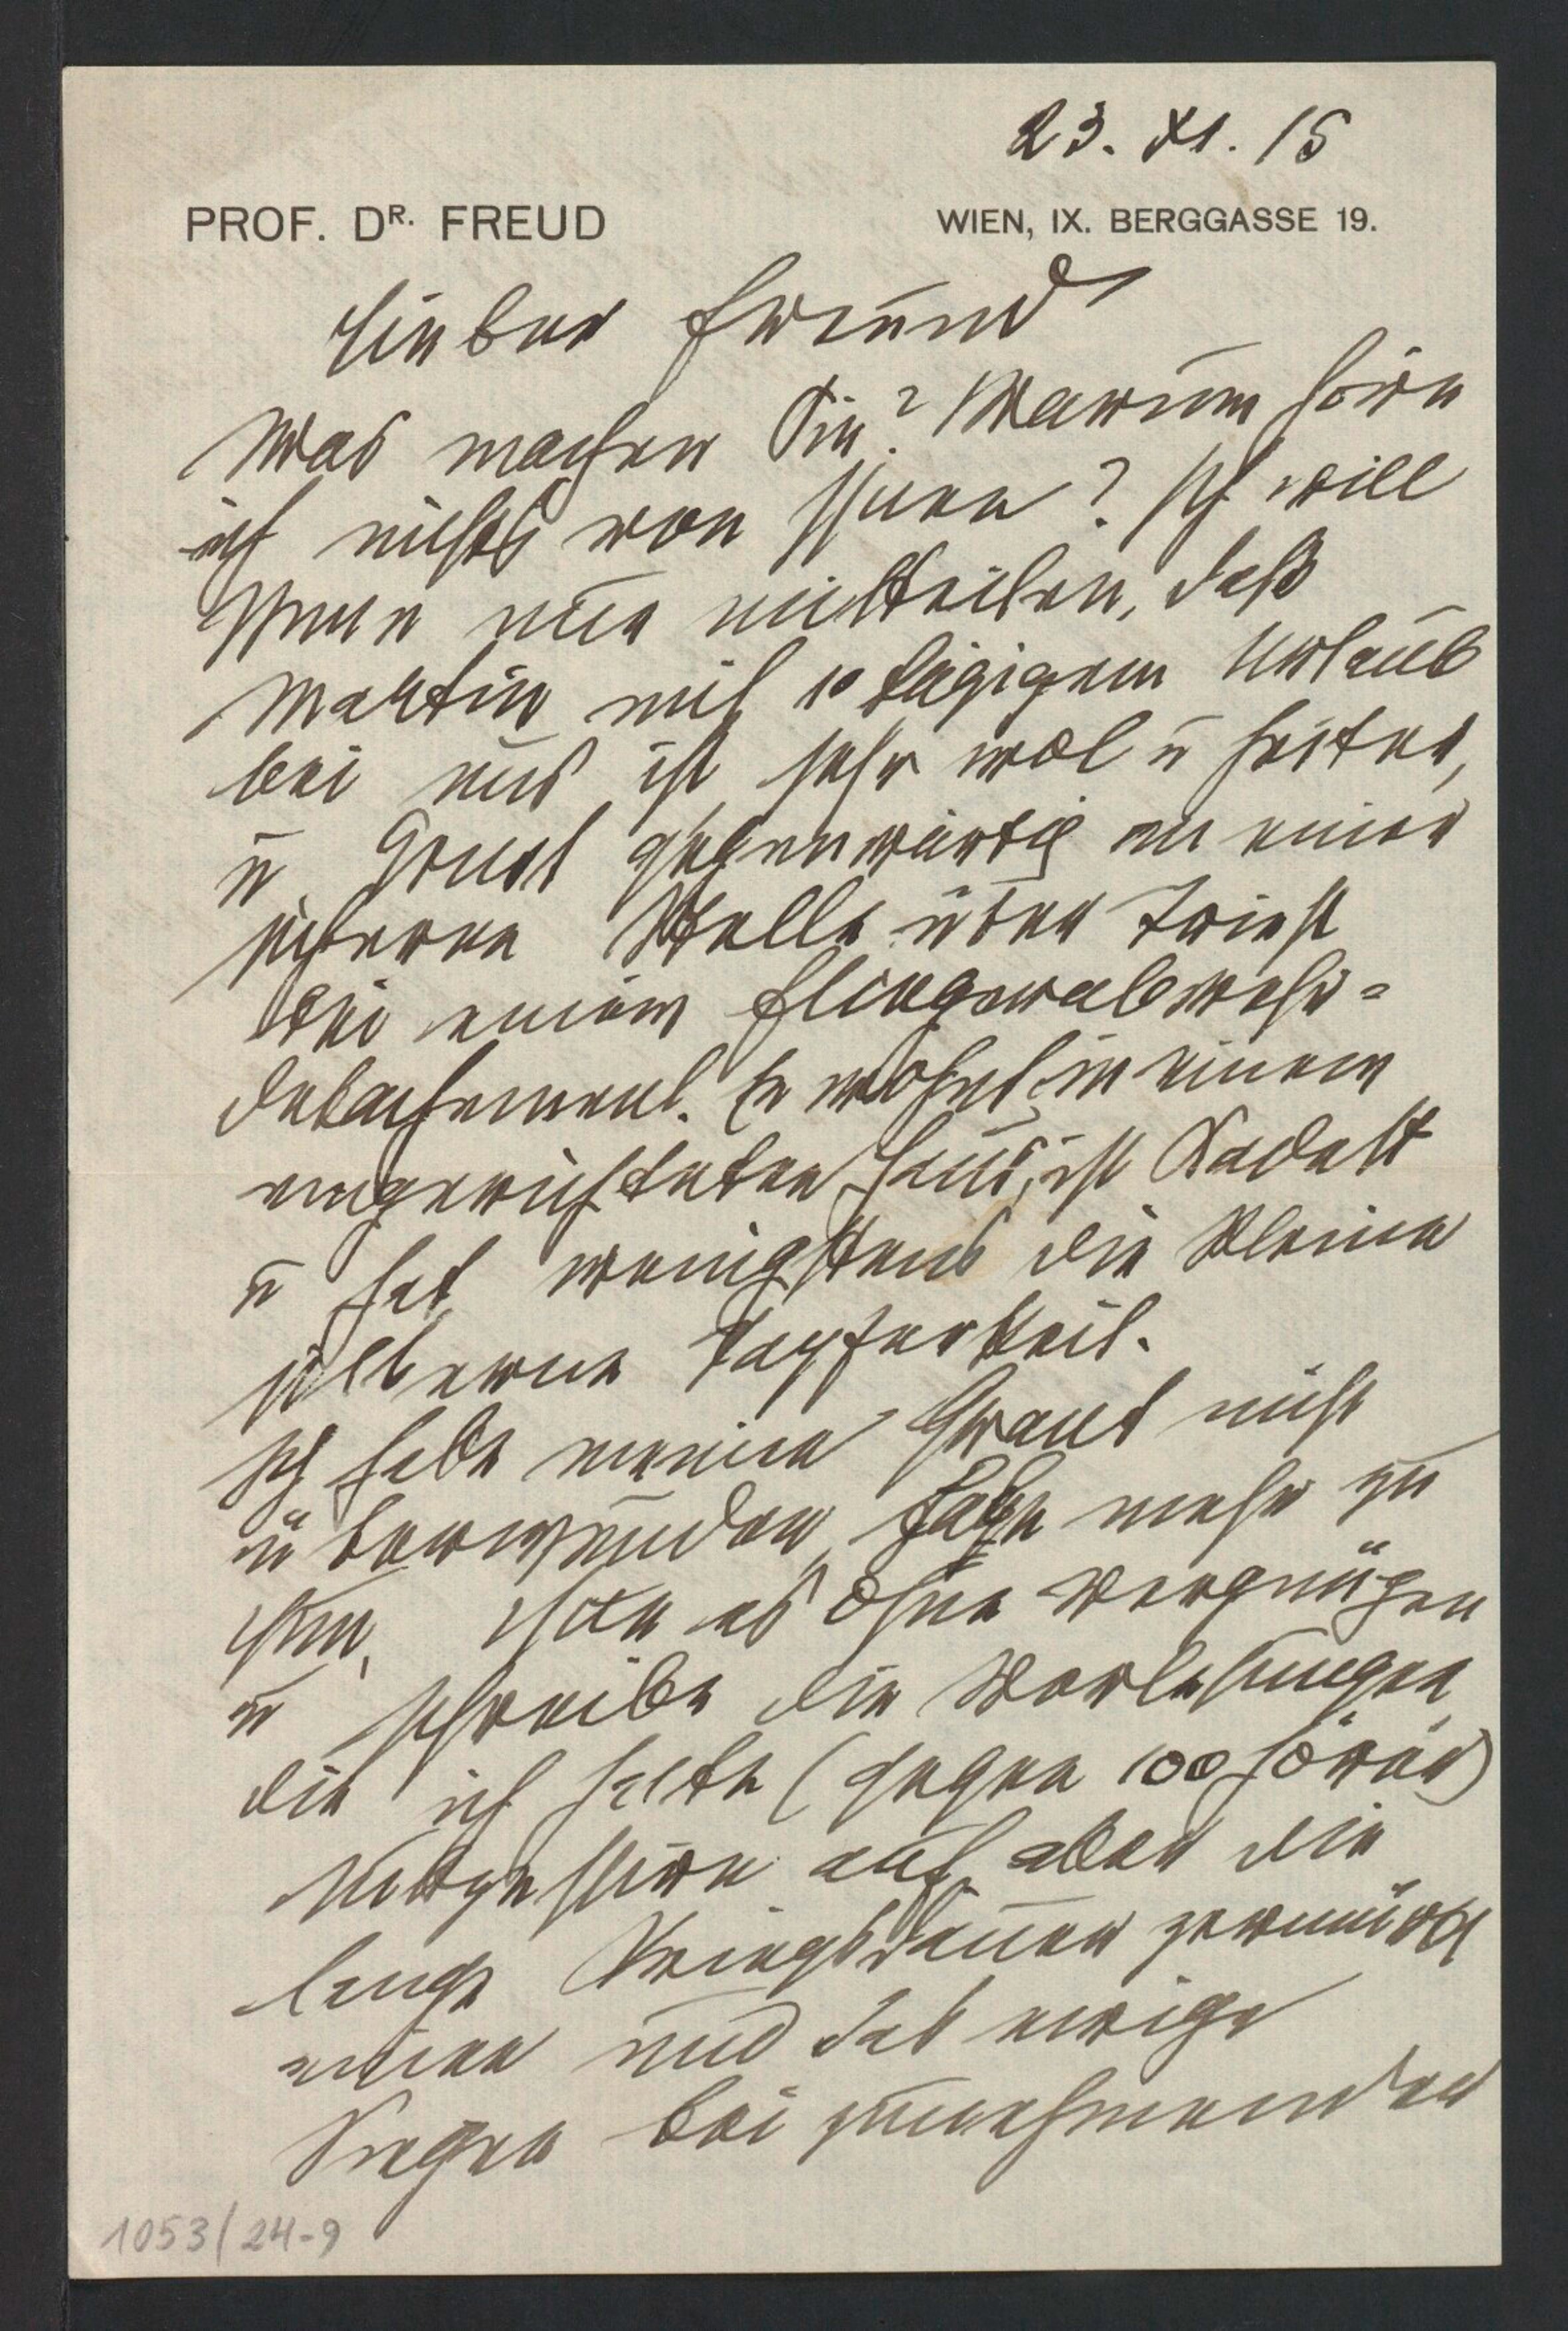 23. XI. 15
PROF. DR. FREUD WIEN, IX. BERGGASSE 19.
Lieber Freund
Was machen Sie? Warum höre
ich nichts von Ihnen? Ich will
Ihnen nur mitteilen, daß
Martin mit 10 tägigem Urlaub
bei uns ist, sehr wol u heiter,
u Ernst gegenwärtig an einer
sicheren Stelle über Triest
bei einem Fliegerabwehr-
detachement. Er wohnt in einem
eingerichteten Haus, ist Kadett
u hat wenigstens die kleine
silberne Tapferkeit.
Ich habe meine nicht
überwunden, habe mehr zu
thun, thue es ohne Vergnügen
u schreibe die Vorlesungen
die ich halte (gegen 100 Hörer)
auf, aber die
lange Kriegsdauer zermürbt
einen und das ewige
Siegen bei zunehmender
1053/24-9